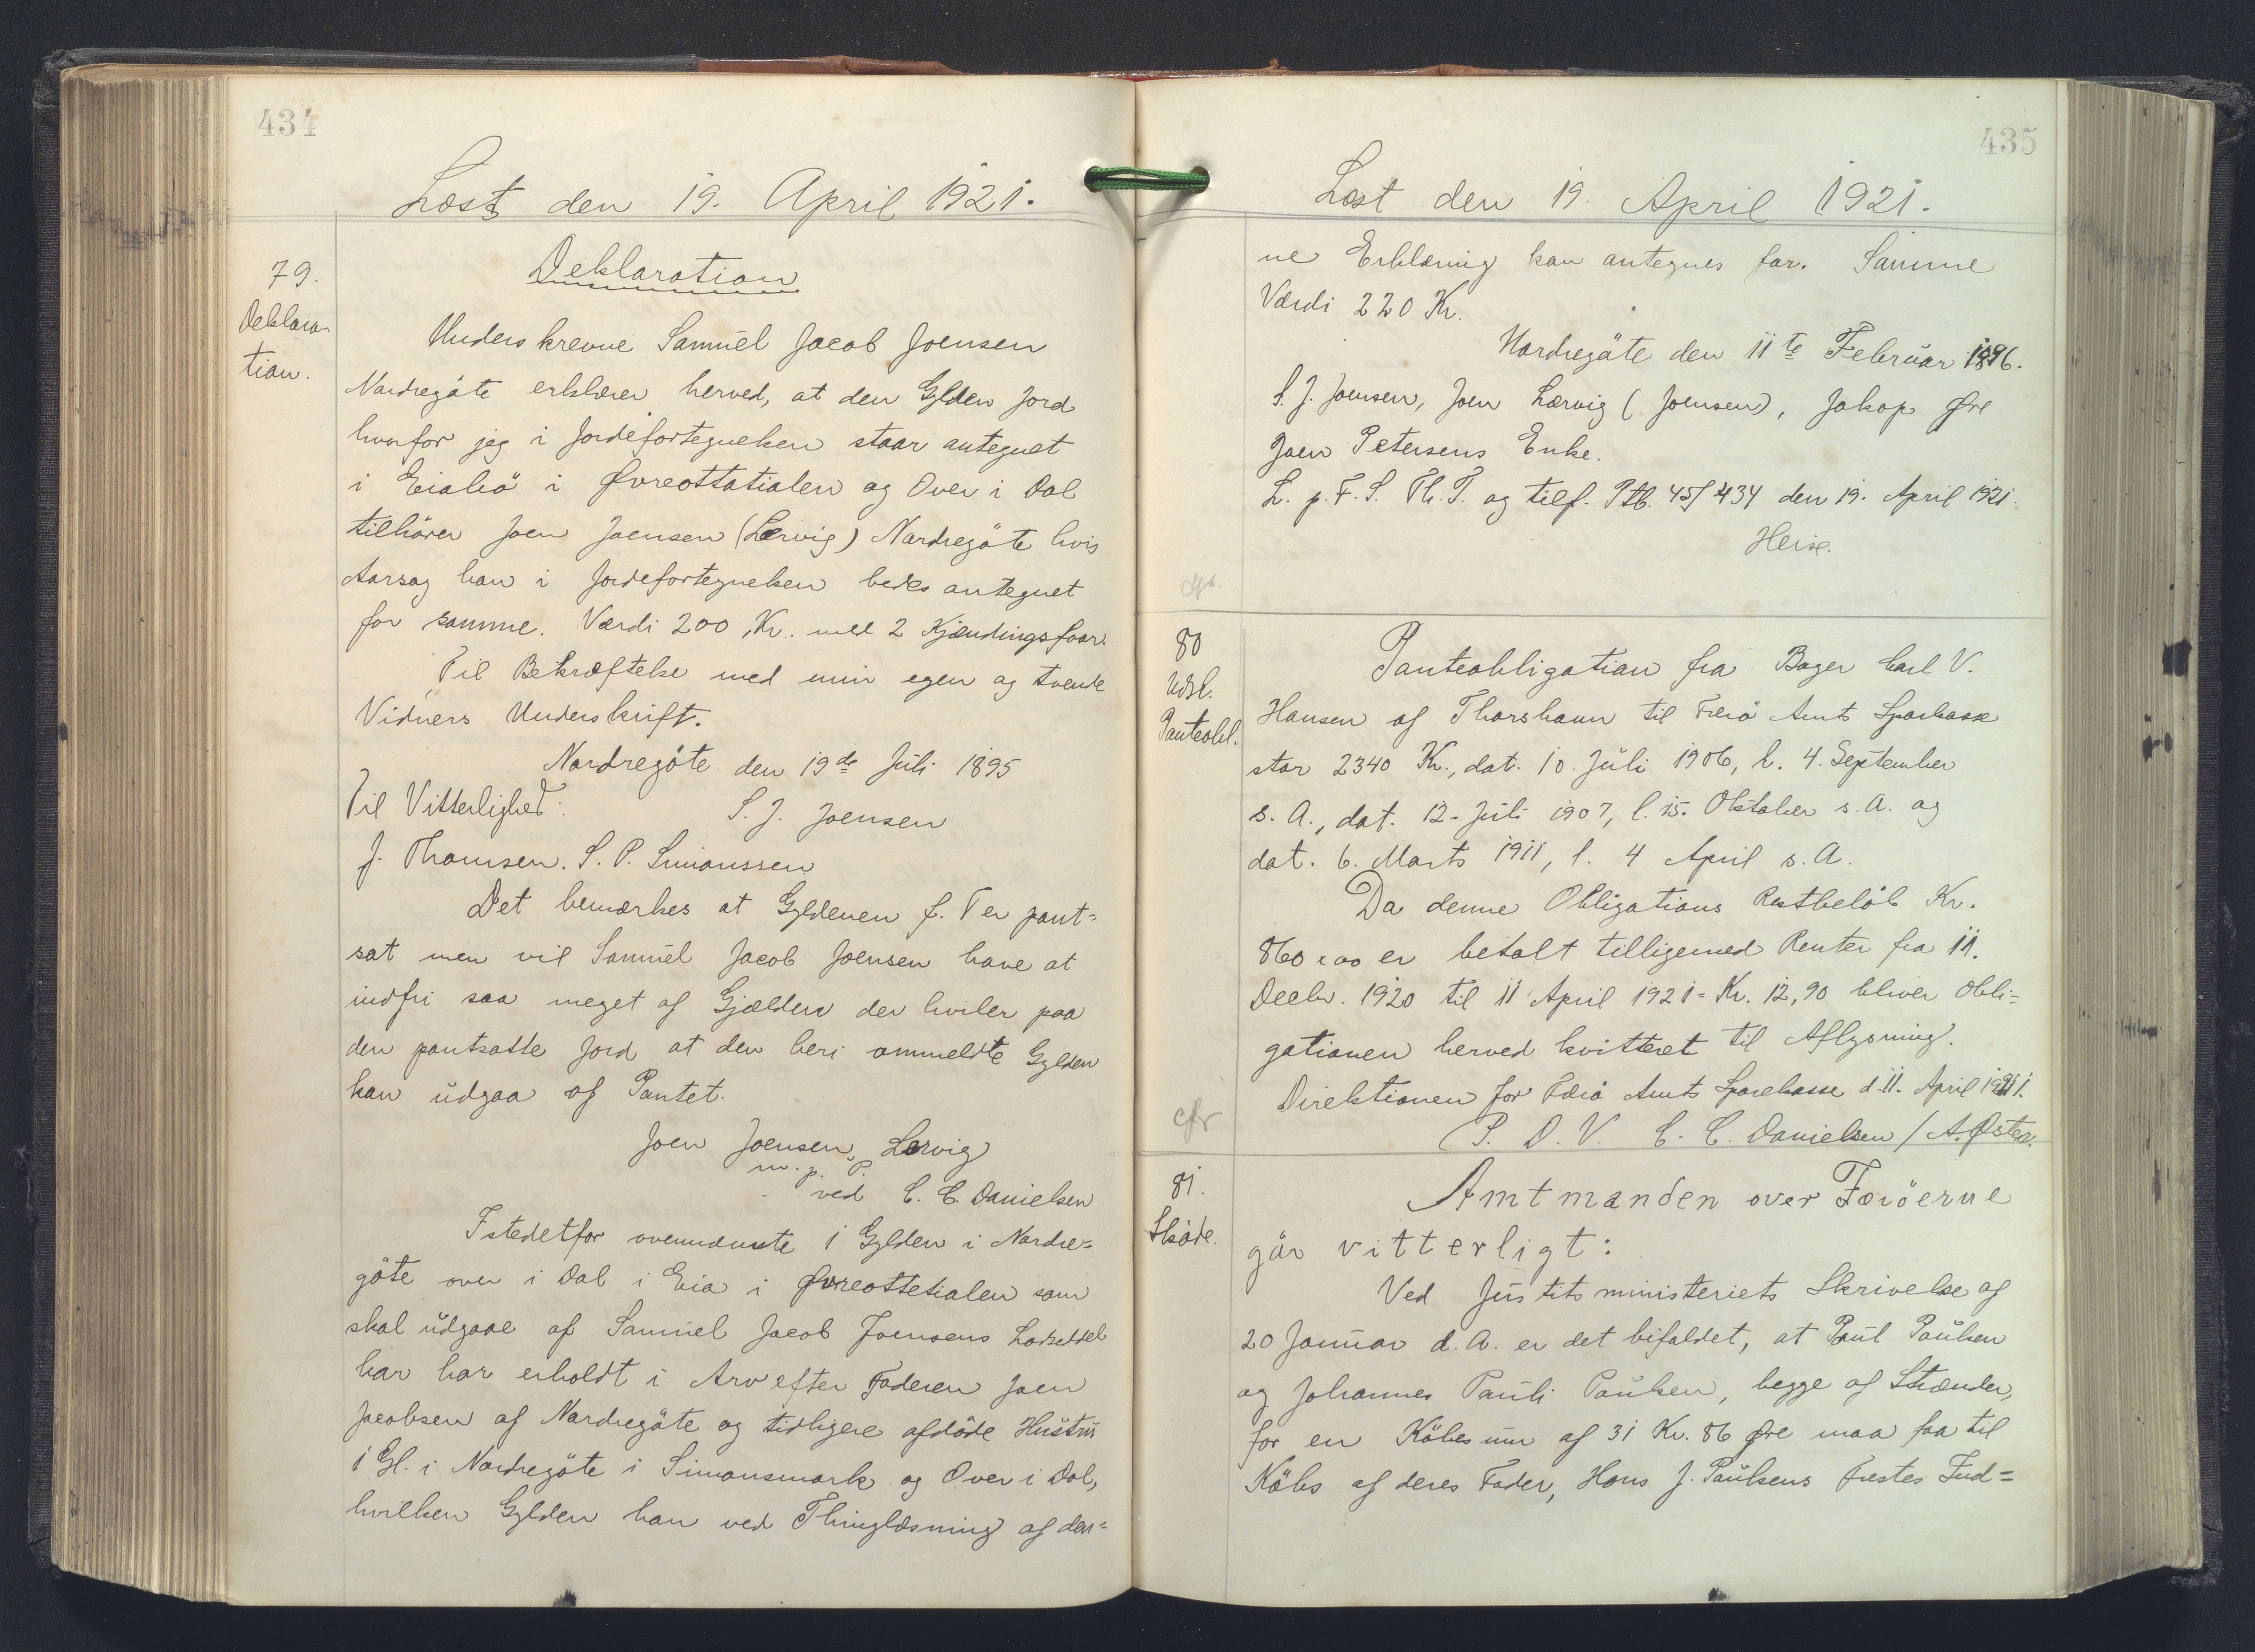 434
Læst den 19. April 1921.
79.
Deklara-
tion.
Deklaration
Underskrevne Samúel Jacob Joensen
Nordregöte erklærer herved, at den Gylden Jord
hvorfor jeg i Jordefortegnelsen staar antegnet
i Øvreottatialen og Over i Dal
tilhörer Joen Joensen (Lervig) Nordregöte hvis
Aarsag han i Jordefortegnelsen bedes antegnet
for samme. Værdi 200, Kr. med 2 Kjændingsfaar.
Til Bekræftelse med min egen og tvende
Vidners Underskrift.
Nordregöte den 19de Júli 1895
Til Vitterlighed: S. J. Joensen
J. Thomsen. S. P. Simonssen
Det bemærkes at Gyldenen f. T er pant=
sat men vil Samúel Jacob Joensen have at
indfri saa meget af Gjælden der hviler paa
den pantsatte Jord at den heri ommeldte Gylden
kan údgaa af Pantet.
Joen Joensen Lervig
m. p. P.
ved C. C. Danielsen
Istedetfor ovennævnte 1 Gylden i Nordre=
göte over i Dal i Eia i Øvreottetialen som
skal údgaae af Samúel Jacob Joensens
har har erholdt i Arv efter Faderen Joen
Jacobsen af Nordregöte og tidligere afdöde Hústrú
1 Gl. i Nordregöte i Simonsmark og Over i Dal,
hvilken Gylden han ved Thinglæsning af den=
435
Læst den 19. April 1921.
ne Erklæring kan antegnes for. Samme
Værdi 220 Kr.
Nordregöte den 11te Februar 1896.
S. J. Joensen, Joen Lervig (Joensen), Jakop Øre
Joen Petersens Enke.
L. p. F. S. Th. T. og tilf. Ptb. 45/434 den 19. April 1921.
Heise.
80
Udsl.
Panteobl.
Panteobligation fra Bager Carl V.
Hansen af Thorshavn til Færö Amts Sparkasse
stor 2340 Kr., dat. 10. Júli 1906, l. 4. September
s. A., dat. 12. Júli 1907, l. 15. Oktober s. A. og
dat. 6. Marts 1911, l. 4 April s. A.
Da denne Obligations Restbelöb Kr.
860 x 00 er betalt tilligemed Renter fra 11.
Decbr. 1920 til 11 April 1921 = Kr. 12,90 bliver Obli=
gationen herved kvitteret til Aflysning.
Direktionen for Færö Amts Sparekasse d. 11. April 1921.
P. D. V. C. C. Danielsen / A. Østerø.
cfr
81.
Sköde.
Amtmanden over Færöerne
gör vitterligt:
Ved Jústitsministeriets Skrivelse af
20 Janúar d. A. er det bifaldet, at Poúl Poúlsen
og Johannes Paúli Poúlsen, begge af Strænder,
for en Köbesum af 31 Kr. 86 Øre maa faa til
Köbs af deres Fader, Hans J. Paúlsens Fæstes Ind=